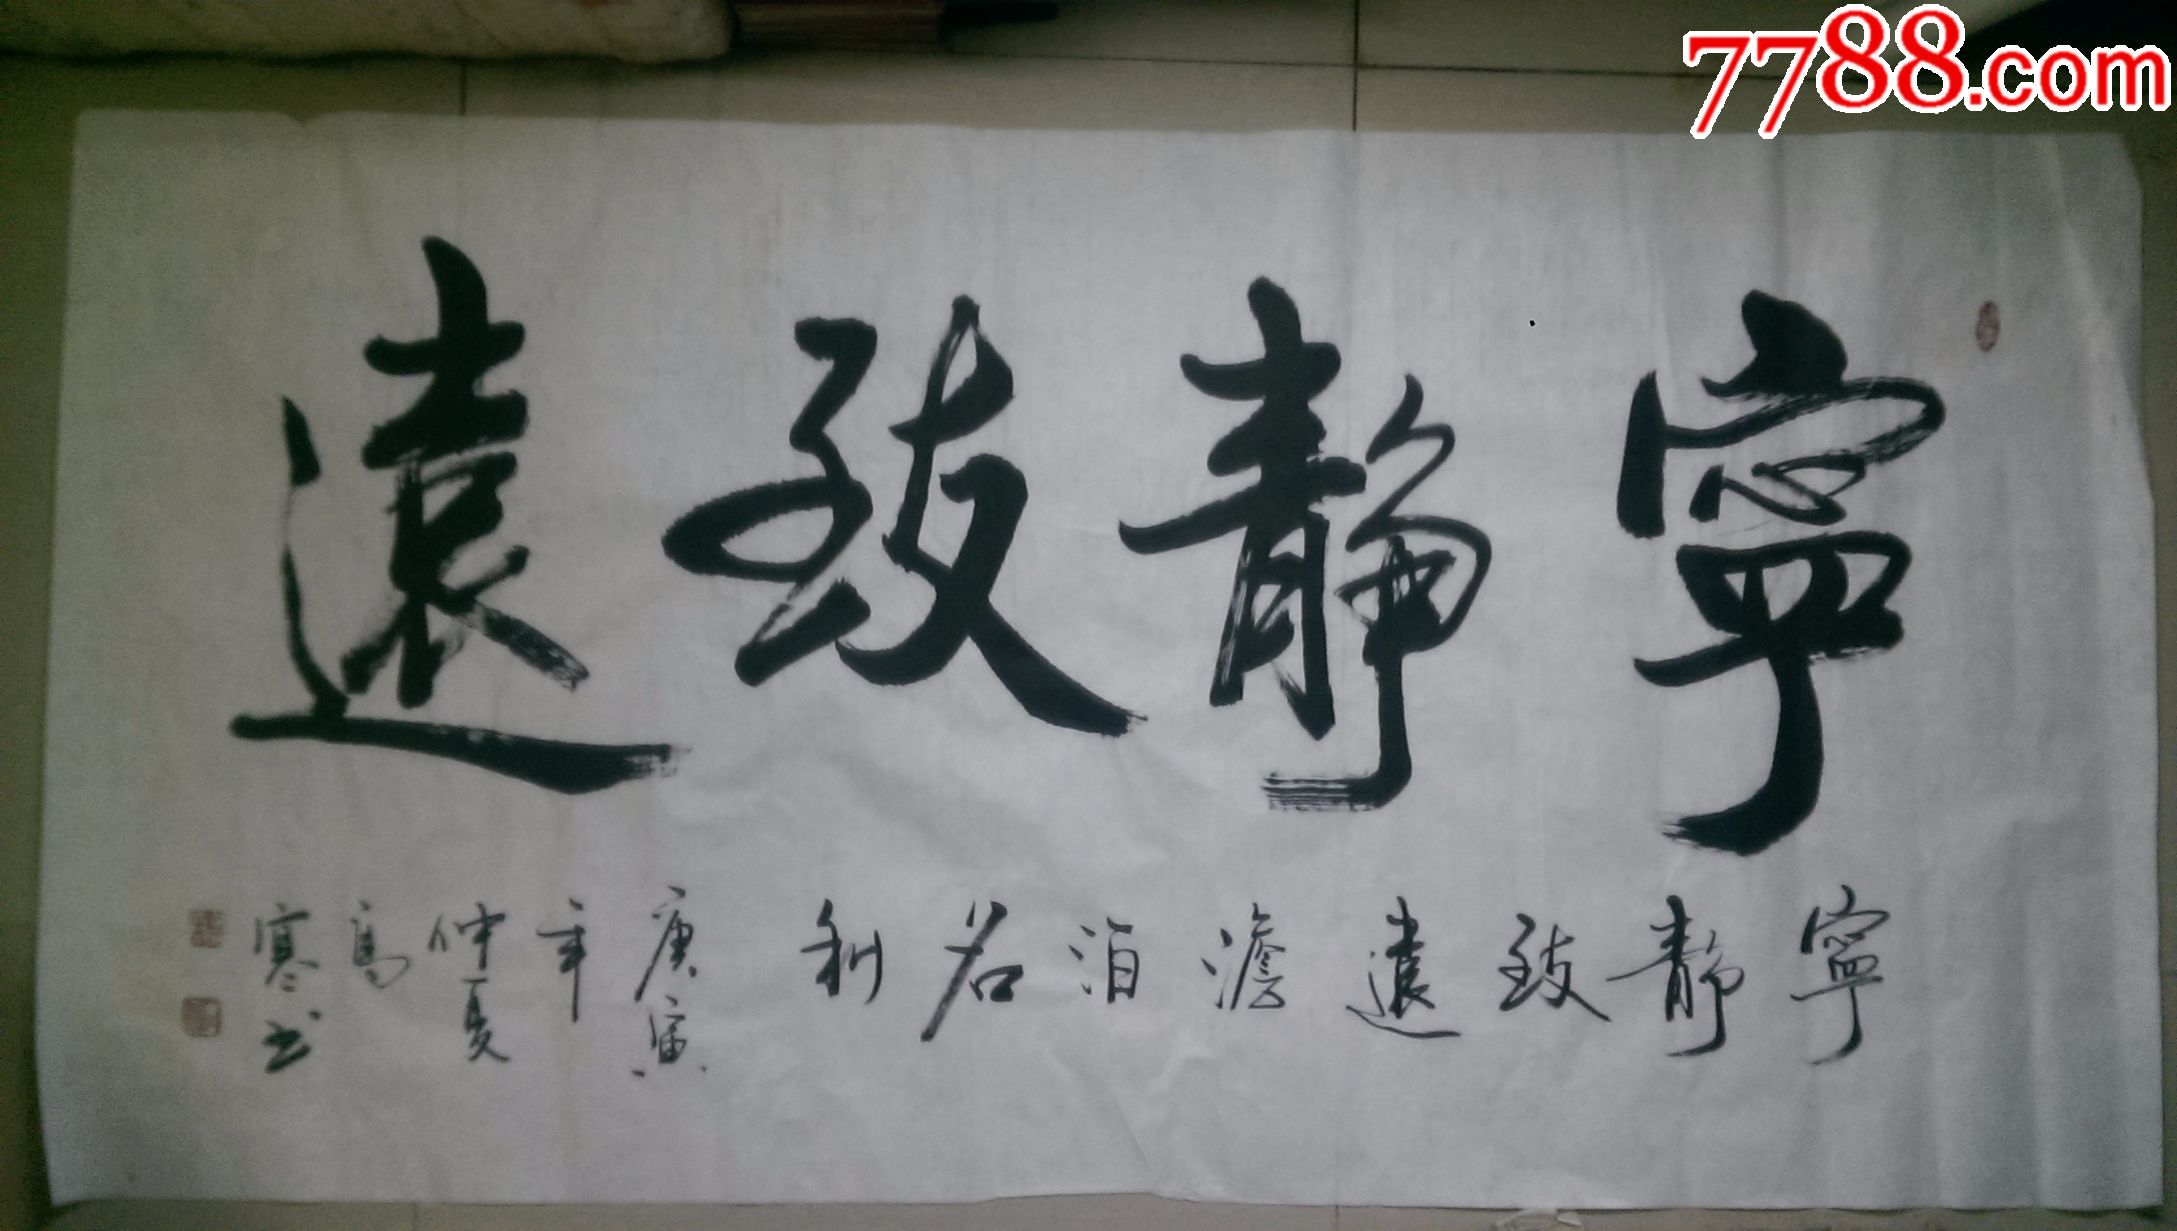 7788.com
寧靜致遠
寧靜致遠澹泊名利
庚寅年仲夏
高寒书